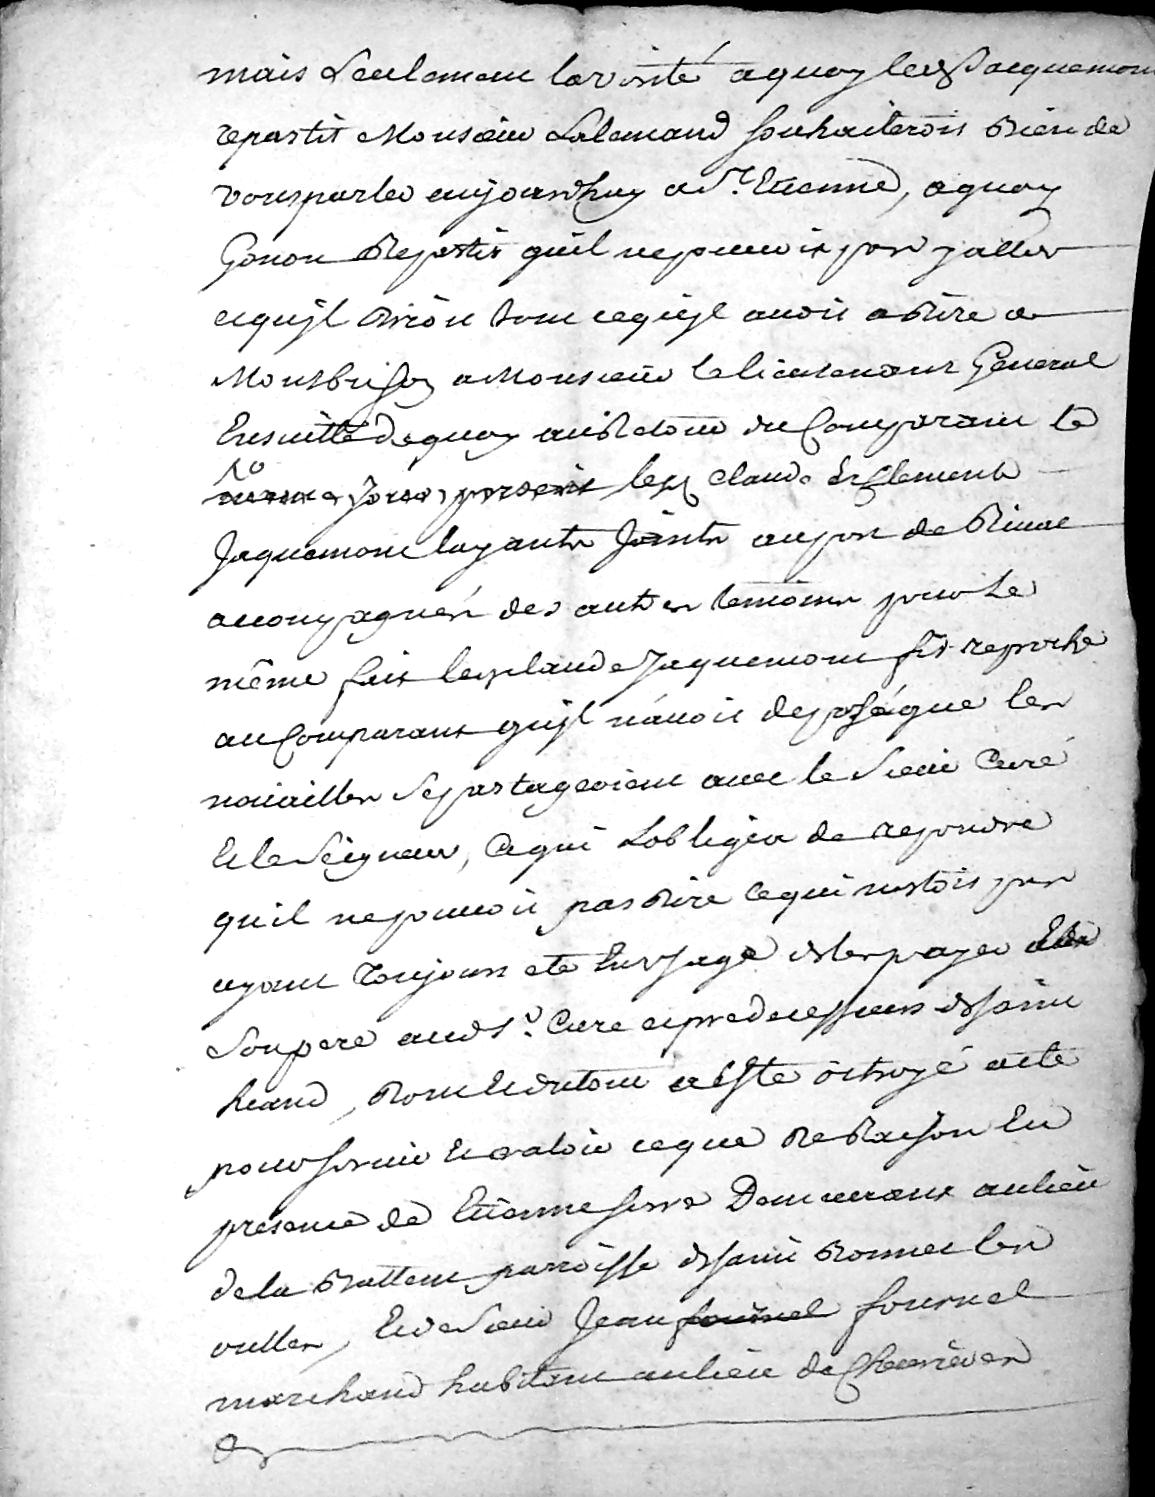 mais seulement la verité a quoy led Jacquemont
repartit Monsieur Lalemand souhaiterois bien de
vous parler aujourdhuy a St. Etienne, a quoy
Gonon Repartit quil ne pouuoit pas y aller
et quil diroit tout ce quil auoit a dire a
Montbrison a Monsieur le lieutenant General
Ensuitte de quoy au Retour du Comparant le
lesd Claude et Clement
Jaquemont layants Joints au port de Riuat
accompagnés des autres temoins pour le
même fait led Claude Jaquemont fit reproche
au Comparant quil n'auoit deposé que les
nouailles se partageoient auec le Sieur Curé
Et le Seigneur, Ce qui Lobligea de repondre
quil ne pouuoit pas dire ce qui nestoit pas
ayant toujours eté En Usage de les payer
Son pere aud Sr. Curé et predecesseurs de Saint
heand, Dont Et du tout a Esté octroyé acte
pour seruir Et valoir ce que De Raison En
presence de Etienne serre Demeurant au lieu
de la parroisse de Saint Bonnet les
oulles, Et de Sieur Jean fournel fournel
marchand habitant au lieu de